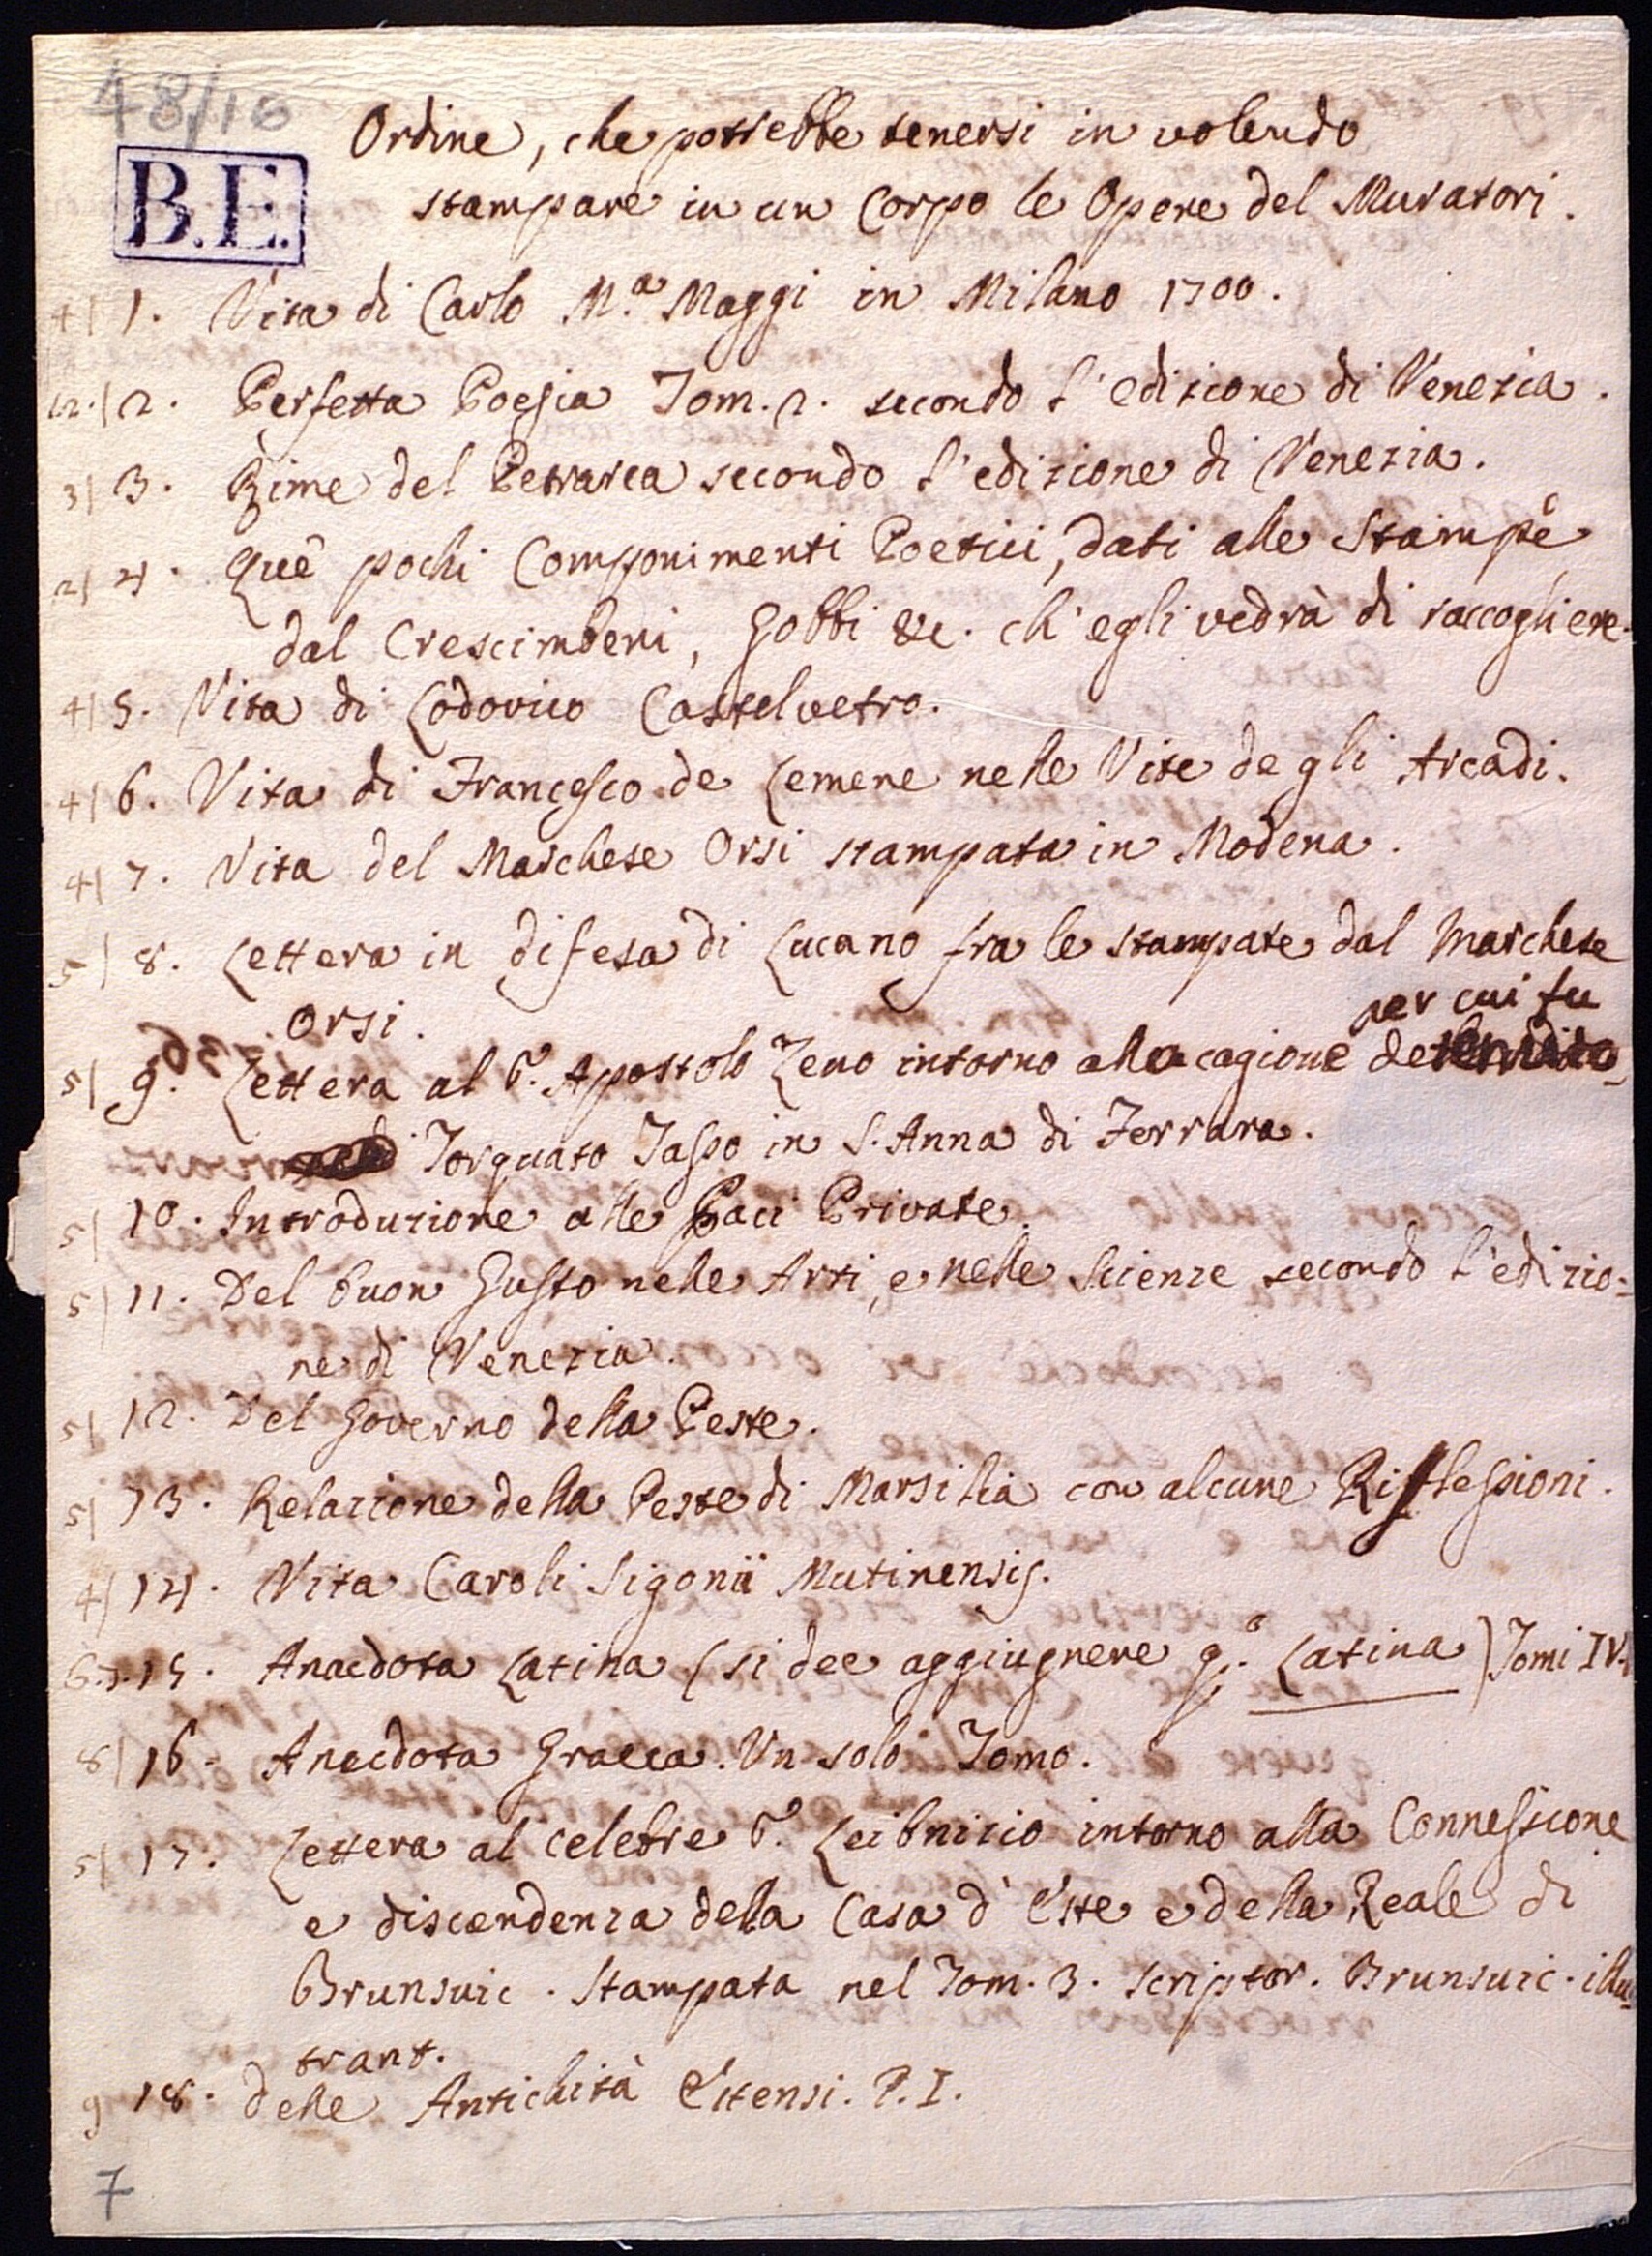 48/16
B.E.
Ordine, che potrebbe tenersi in volendo
stampare in un Corpo le Opere del Muratori.
4| 1. Vita di Carlo M.a Maggi in Milano 1700.
12.| 2. Perfetta Poesia Tom. 2. secondo l'edizione di Venezia.
3| 3. Rime del Petrarca secondo l'edizione di Venezia.
2| 4. Que' pochi Componimenti Poetici, dati alle Stampe
dal Crescimbeni, Gobbi &c. ch'egli vedrà di raccogliere.
4| 5. Vita di Lodovico Castelvetro.
4| 6. Vita di Francesco de Lemene nelle Vite degli Arcadi.
4| 7. Vita del Marchese Orsi stampata in Modena.
5| 8. Lettera in difesa di Lucano fra le stampate dal Marchese
Orsi.
per cui fu
5| 9. Lettera al S. Apostolo Zeno intorno alla cagione
Torquato Tasso in S. Anna di Ferrara.
5| 10. Introduzione alle Paci Private.
5| 11. Del buon Gusto nelle Arti, e nelle Scienze secondo l'edizio-
ne di Venezia.
5| 12. Del Governo della Peste.
5| 13. Relazione della Peste di Marsilia con alcune Riflessioni.
4| 14. Vita Caroli Sigonii Mutinensis.
6.7. 15. Anecdota Latina (si dee aggiugnere q.a Latina) Tomi IV.
8| 16. Anecdota Graeca. Un solo Tomo.
5| 17. Lettera al celebre S. Leibnizio intorno alla Connessione
e discendenza della Casa d'Este e della Reale di
Brunsuic. Stampata nel Tom. 3. Scriptor. Brunsuic. illu-
trant.
9 18. Delle Antichità Estensi. P. I.
7